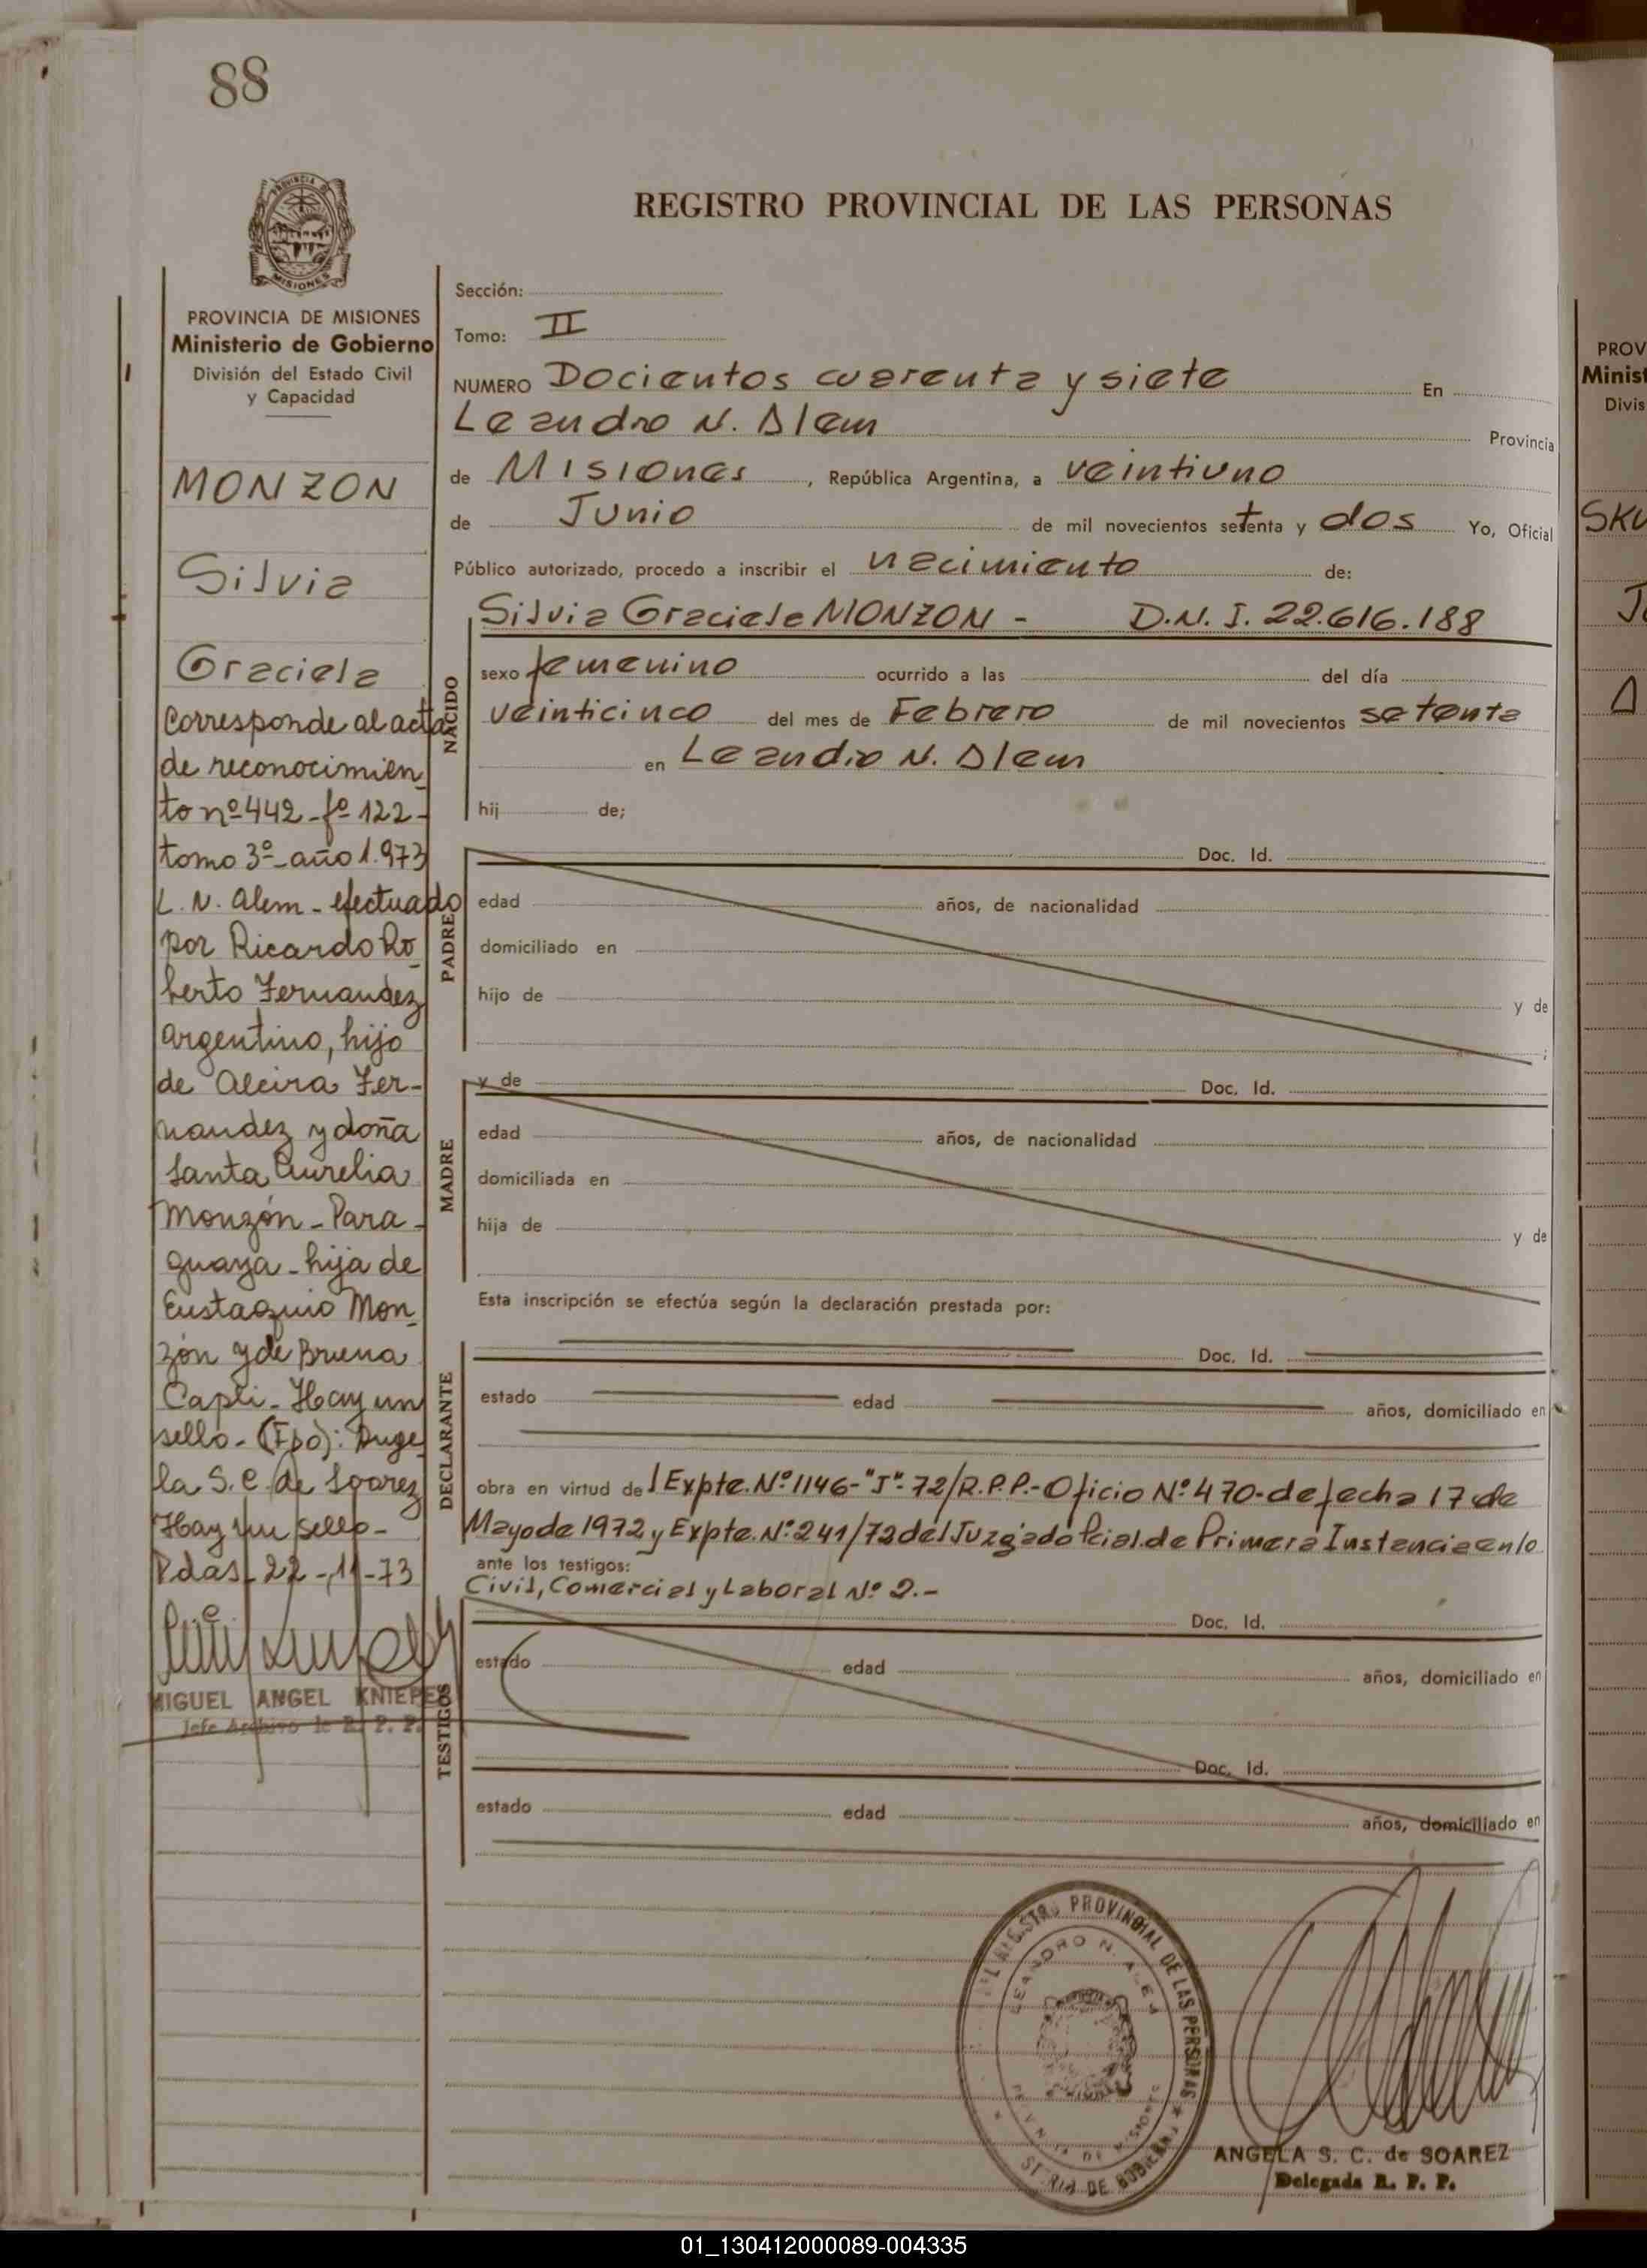 88
PROVINCIA DE
MISIONES
REGISTRO PROVINCIAL DE LAS PERSONAS
PROVINCIA DE MISIONES
Ministerio de Gobierno
División del Estado Civil
y Capacidad
MONZON
Silvia
Graciela
Corresponde al acta
de reconocimien
to nº 442 - fº 122 -
tomo 3º - año 1.973
L. N. Alem - efectuado
por Ricardo Ro
berto Fernandez
argentino, hijo
de Alcira Fer-
nandez y doña
Santa Aurelia
Monzón - Para -
guaya - hija de
Eustaquio Mon
zón y de Bruna
Capli - Hay un
sello - (Fdo): Ange
la S. C. de Soarez
Hay un sello -
Pdas - 22 - 11 - 73
MIGUEL ANGEL KNIEPES
Jefe Archivo R. P. P.
Sección:
Tomo: II
NUMERO Docientos cuarenta y siete En
Leandro N. Alem Provincia
de Misiones, República Argentina, a veintiuno
de Junio de mil novecientos setenta y dos Yo, Oficial
Público autorizado, procedo a inscribir el nacimiento de:
NACIDO
Silvia Graciela MONZON - D.N.I. 22.616.188
sexo femenino ocurrido a las del día
veinticinco del mes de Febrero de mil novecientos setenta
en Leandro N. Alem
hij de;
PADRE
Doc. Id.
edad años, de nacionalidad
domiciliado en
hijo de y de
;
MADRE
y de Doc. Id.
edad años, de nacionalidad
domiciliada en
hija de y de
Esta inscripción se efectúa según la declaración prestada por:
DECLARANTE
Doc. Id.
estado edad años, domiciliado en
obra en virtud de l Expte. Nº 1146-"J"-72/R.P.P.- Oficio Nº 470- de fecha 17 de
Mayo de 1972 y Expte. Nº 241/72 del Juzgado Pcial. de Primera Instancia en lo
ante los testigos:
Civil, Comercial y Laboral Nº 2.-
TESTIGOS
Doc. Id.
estado edad años, domiciliado en
Doc. Id.
estado edad años, domiciliado en
REGISTRO PROVINCIAL DE LAS PERSONAS
LEANDRO N. ALEM
PROVINCIA DE MISIONES
DE GOBIERNO
ANGELA S. C. de SOAREZ
Delegada R. P. P.
PROV
Minist
Divis
SKU
01_130412000089-004335